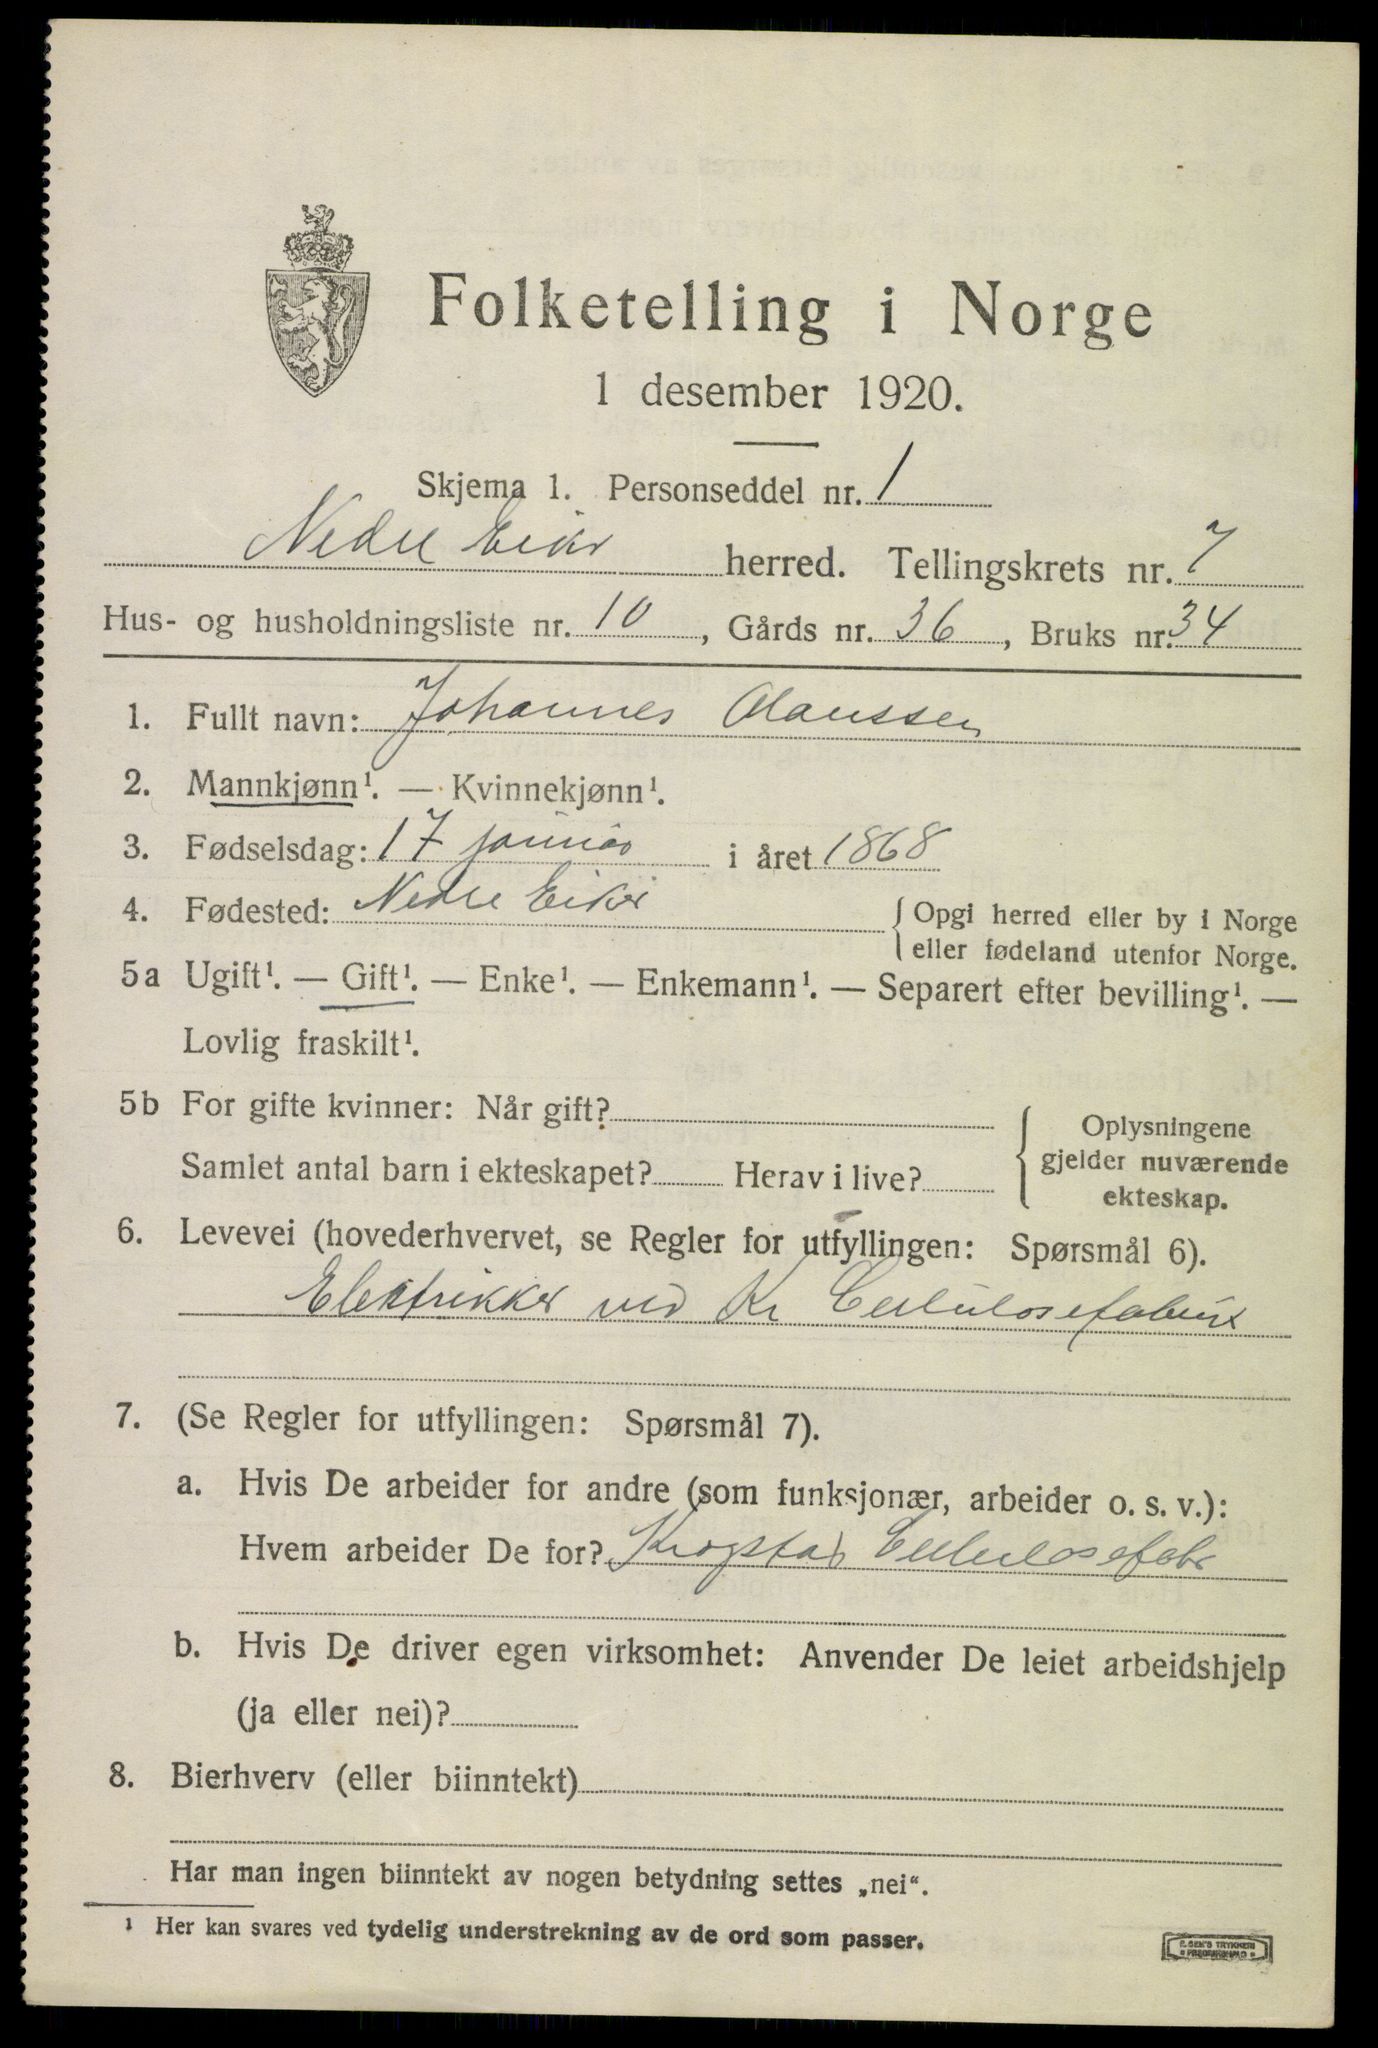 Folketelling i Norge
1 desember 1920.
Skjema 1. Personseddel nr. 1
Nedre Eiker herred. Tellingskrets nr. 7
Hus- og husholdningsliste nr. 10, Gårds nr. 36, Bruks nr. 34
1. Fullt navn: Johannes Olaussen
2. Mannkjønn¹. — Kvinnekjønn¹.
3. Fødselsdag: 17 januar i året 1868
4. Fødested: Nedre Eiker { Opgi herred eller by i Norge
eller fødeland utenfor Norge.
5a Ugift¹. — Gift¹. — Enke¹. — Enkemann¹. — Separert efter bevilling¹. —
Lovlig fraskilt¹.
5b For gifte kvinner: Når gift?
Samlet antal barn i ekteskapet? Herav i live?
Oplysningene
gjelder nuværende
ekteskap.
6. Levevei (hovederhvervet, se Regler for utfyllingen: Spørsmål 6).
Elektrikker ved Kr Cellulosefabrik
7. (Se Regler for utfyllingen: Spørsmål 7).
a. Hvis De arbeider for andre (som funksjonær, arbeider o. s. v.):
Hvem arbeider De for? Krogstad Cellulosefabr
b. Hvis De driver egen virksomhet: Anvender De leiet arbeidshjelp
(ja eller nei)?
8. Bierhverv (eller biinntekt)
Har man ingen biinntekt av nogen betydning settes „nei“.
¹ Her kan svares ved tydelig understrekning av de ord som passer.